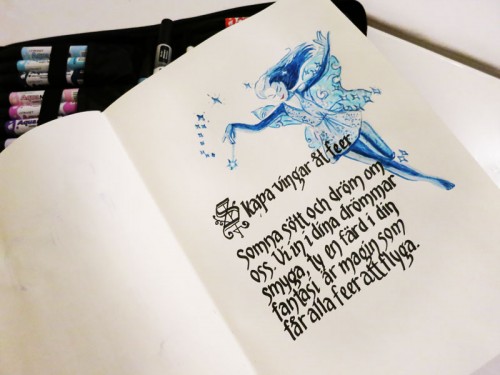 Skapa vingar åt feer
Somna sött och dröm om
oss. Vi in i dina drömmar
smyga, ty en färd i din
fantasi är magin som
får alla feer att flyga.